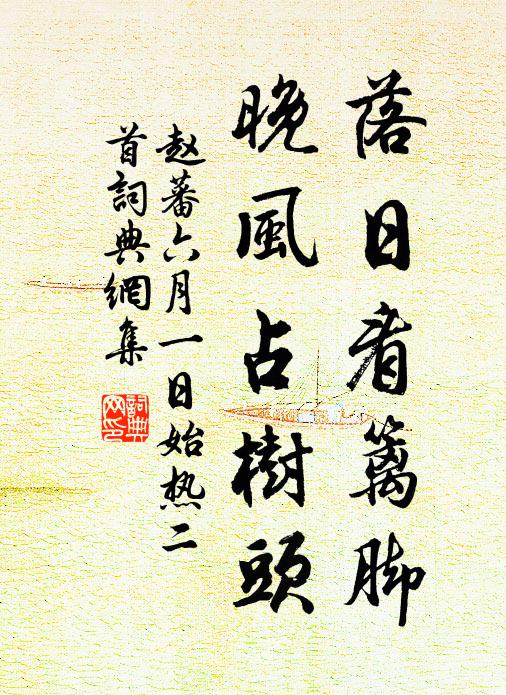 落日看篱脚
晚風占樹頭
赵蕃六月一日始热二
首詞典網集
詞典
网印